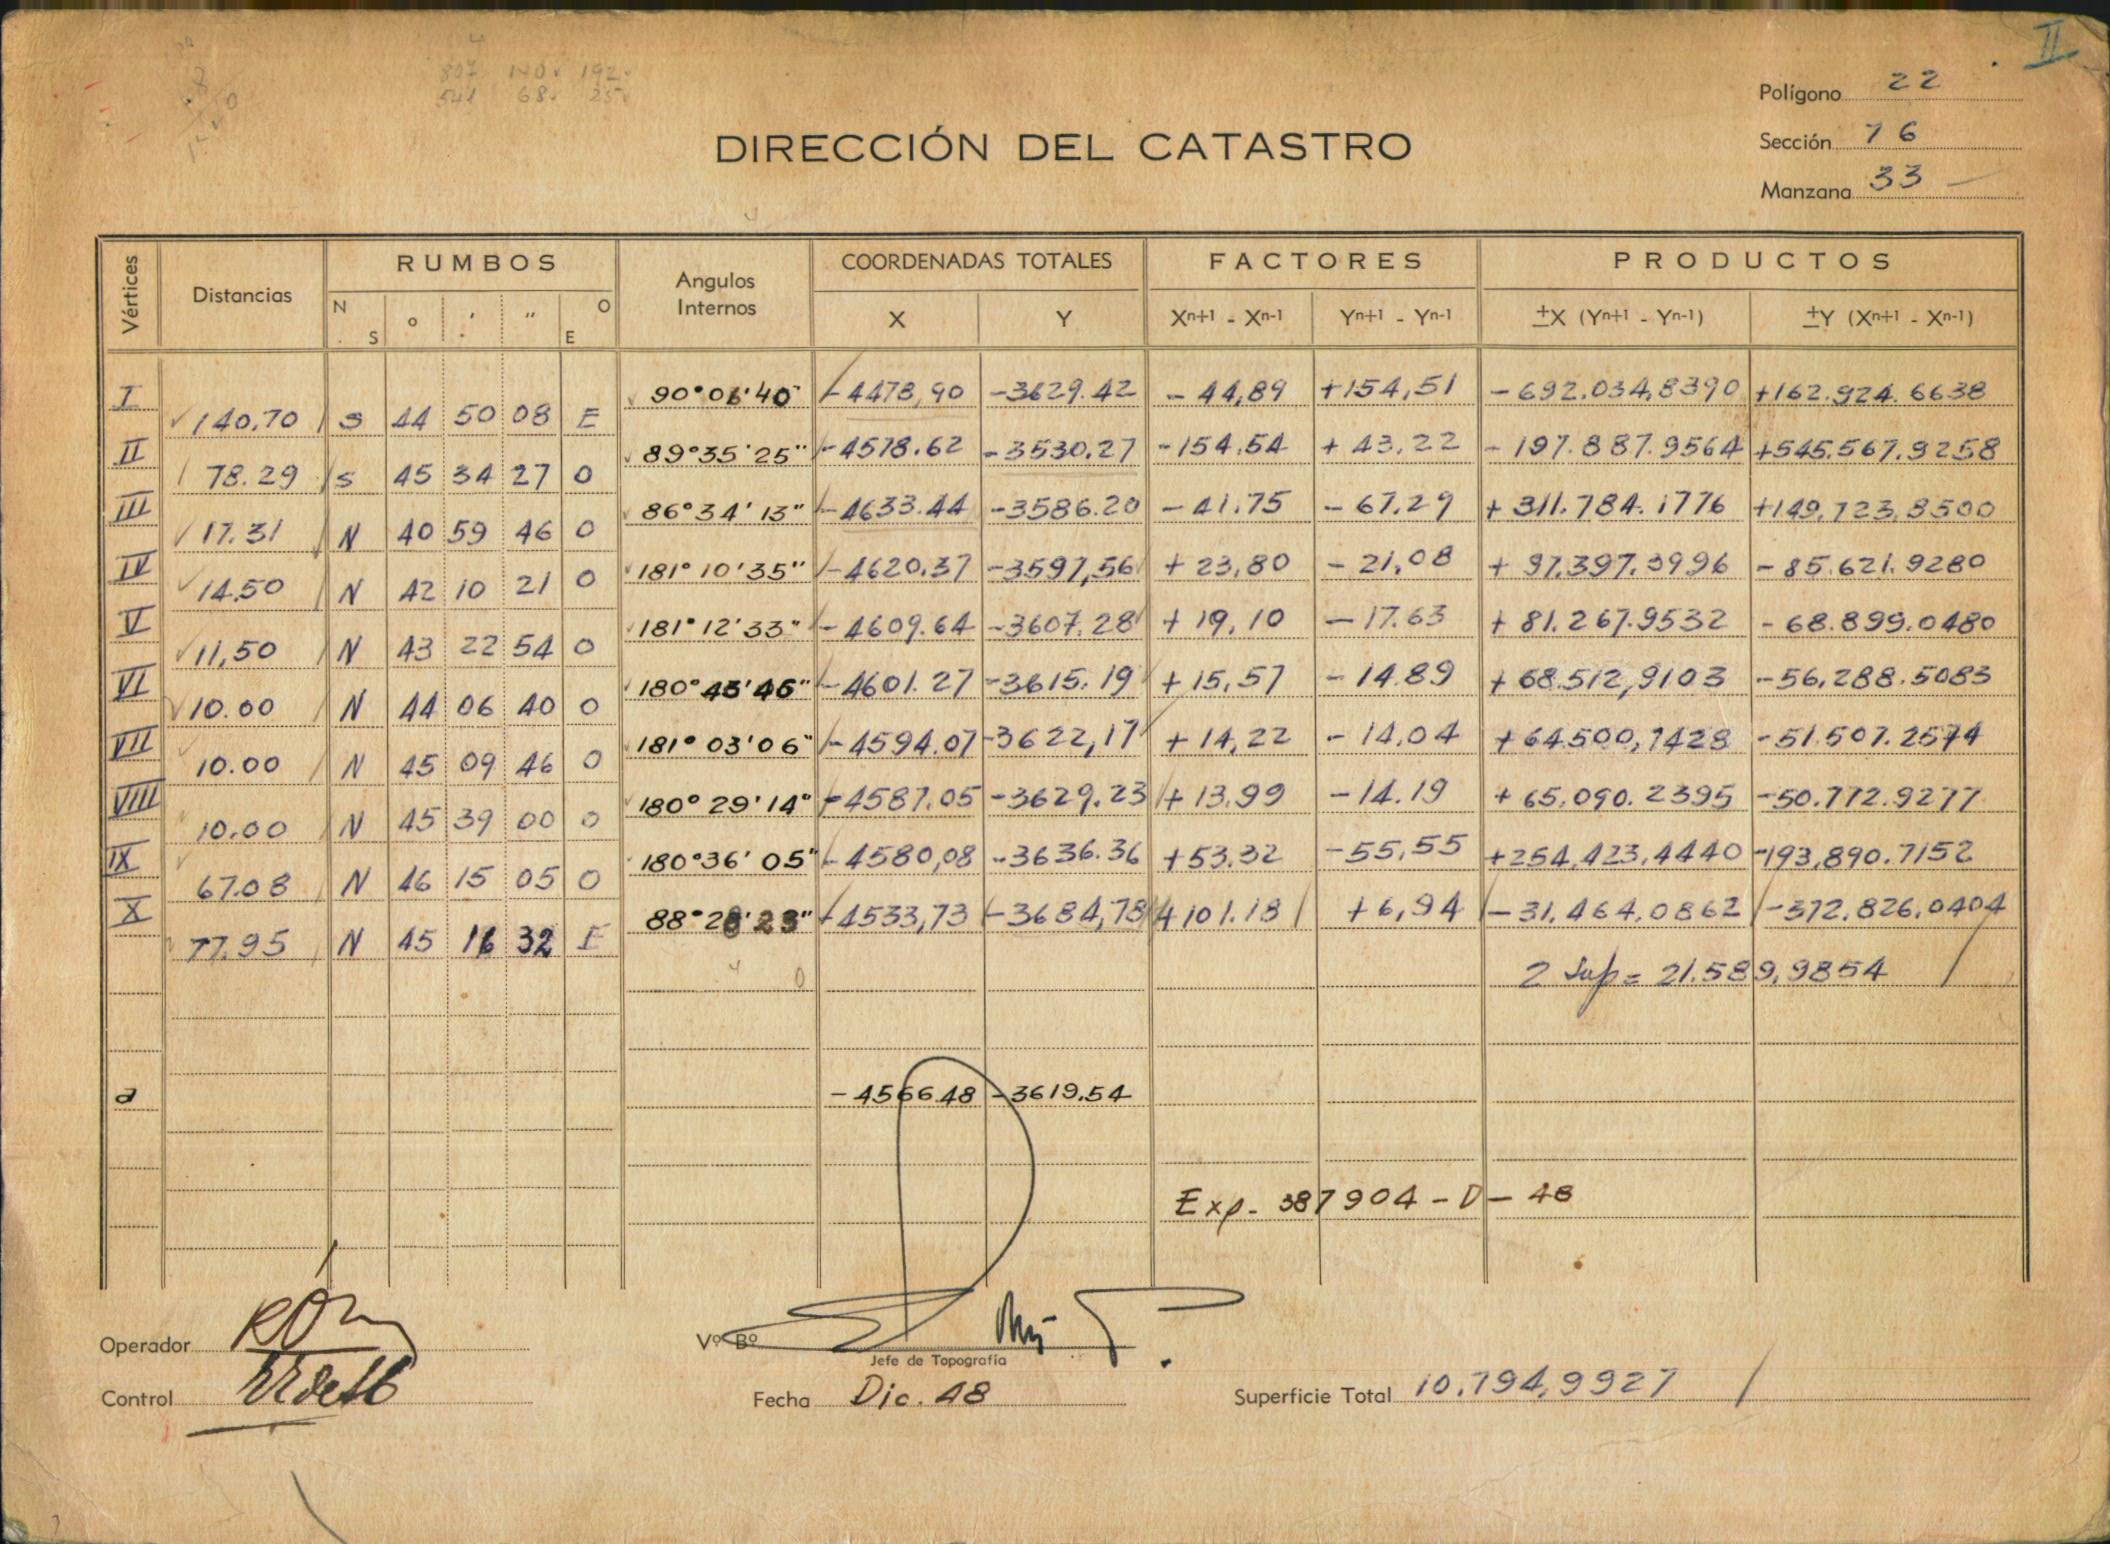 II
807 140 192
541 68 25
Polígono 22
Sección 76
Manzana 33
DIRECCIÓN DEL CATASTRO
Vértices Distancias RUMBOS Angulos Internos COORDENADAS TOTALES FACTORES PRODUCTOS
N S ° ' " O E X Y Xn+1 - Xn-1 Yn+1 - Yn-1 ±X (Yn+1 - Yn-1) ±Y (Xn+1 - Xn-1)
I 90°01'40" -4478,90 -3629.42 -44,89 +154,51 -692.034,8390 +162.924.6638
140.70 S 44 50 08 E
II 89°35'25" -4578.62 -3530.27 -154.54 +43.22 -197.887.9564 +545.567.9258
78.29 S 45 34 27 O
III 86°34'13" -4633.44 -3586.20 -41.75 -67.29 +311.784.1776 +149.723.8500
17.31 N 40 59 46 O
IV 181°10'35" -4620.37 -3597,56 +23,80 -21,08 +97.397.3996 -85.621.9280
14.50 N 42 10 21 O
V 181°12'33" -4609.64 -3607.28 +19,10 -17.63 +81.267.9532 -68.899.0480
11,50 N 43 22 54 O
VI 180°43'46" -4601.27 -3615.19 +15,57 -14.89 +68.512,9103 -56.288.5083
10.00 N 44 06 40 O
VII 181°03'06" -4594.07 -3622,17 +14,22 -14.04 +64.500,7428 -51.507.2574
10.00 N 45 09 46 O
VIII 180°29'14" -4587.05 -3629.23 +13.99 -14.19 +65.090.2395 -50.772.9277
10.00 N 45 39 00 O
IX 180°36'05" -4580,08 -3636.36 +53.32 -55,55 +254,423,4440 -193,890.7152
67.08 N 46 15 05 O
X 88°28'23" -4533,73 -3684,78 +101.18 +6,94 -31.464.0862 -372.826.0404
77.95 N 45 16 32 E
2 Sup= 21.589,9854
a -4566.48 -3619.54
Exp. 387904-D-48
Operador
Vº Bº
Jefe de Topografía
Control
Fecha Dic. 48
Superficie Total 10.794,9927